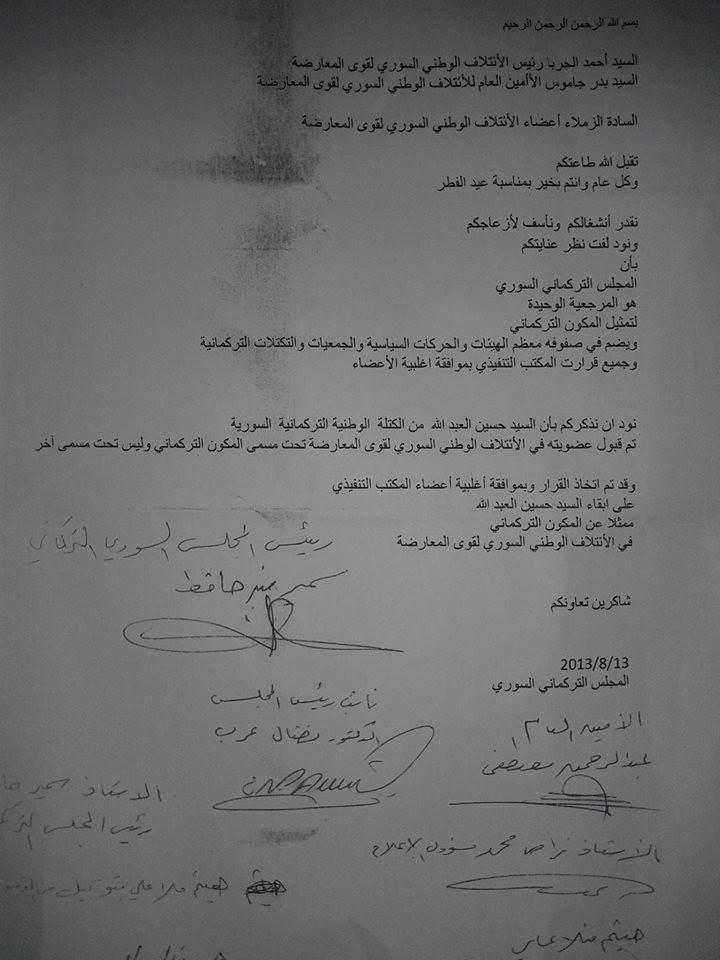 بسم الله الرحمن الرحمن الرحيم
السيد أحمد الجربا رئيس الأئتلاف الوطني السوري لقوى المعارضة
السيد بدر جاموس الأأمين العام للأئتلاف الوطني السوري لقوى المعارضة
السادة الزملاء أعضاء الأئتلاف الوطني السوري لقوى المعارضة
تقبل الله طاعتكم
وكل عام وانتم بخير بمناسبة عيد الفطر
نقدر أنشغالكم ونأسف لأزعاجكم
ونود لفت نظر عنايتكم
بأن
المجلس التركماني السوري
هو المرجعية الوحيدة
لتمثيل المكون التركماني
ويضم في صفوفه معظم الهيئات والحركات السياسية والجمعيات والتكتلات التركمانية
وجميع قرارت المكتب التنفيذي بموافقة اغلبية الأعضاء
نود ان نذكركم بأن السيد حسين العبد الله من الكتلة الوطنية التركمانية السورية
تم قبول عضويته في الأئتلاف الوطني السوري لقوى المعارضة تحت مسمى المكون التركماني وليس تحت مسمى آخر
وقد تم اتخاذ القرار وبموافقة أغلبية أعضاء المكتب التنفيذي
على ابقاء السيد حسين العبد الله
ممثلا عن المكون التركماني
في الأئتلاف الوطني السوري لقوى المعارضة
رئيس المجلس السوري التركماني
سمير حافظ
شاكرين تعاونكم
2013/8/13
المجلس التركماني السوري
نائب رئيس المجلس
الدكتور نضال عرب
الأمين العام
عبدالرحمن مصطفى
الاستاذ سمير حا
رئيس المجلس التر
الأستاذ محمد مسؤول الإعلام
هيثم منلا علي
هيثم منلا علي